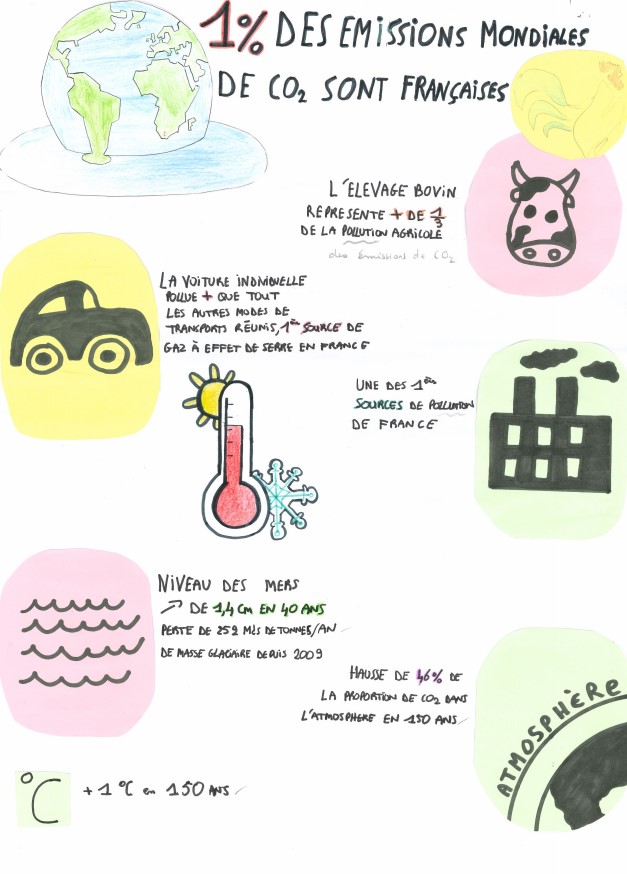 1% DES EMISSIONS MONDIALES
DE CO₂ SONT FRANÇAISES
L'ELEVAGE BOVIN
REPRESENTE + DE 1/3
DE LA POLLUTION AGRICOLE
des émissions de CO₂
LA VOITURE INDIVIDUELLE
POLLUE + QUE TOUT
LES AUTRES MODES DE
TRANSPORTS RÉUNIS, 1ère SOURCE DE
GAZ À EFFET DE SERRE EN FRANCE
UNE DES 1ères
SOURCES DE POLLUTION
DE FRANCE
NIVEAU DES MERS
↗ DE 1,4 CM EN 40 ANS
PERTE DE 252 Mds DE TONNES/AN
DE MASSE GLACIAIRE DEPUIS 2009
HAUSSE DE 46% DE
LA PROPORTION DE CO₂ DANS
L'ATMOSPHERE EN 150 ANS
ATMOSPHÈRE
°C
+ 1 °C en 150 ANS